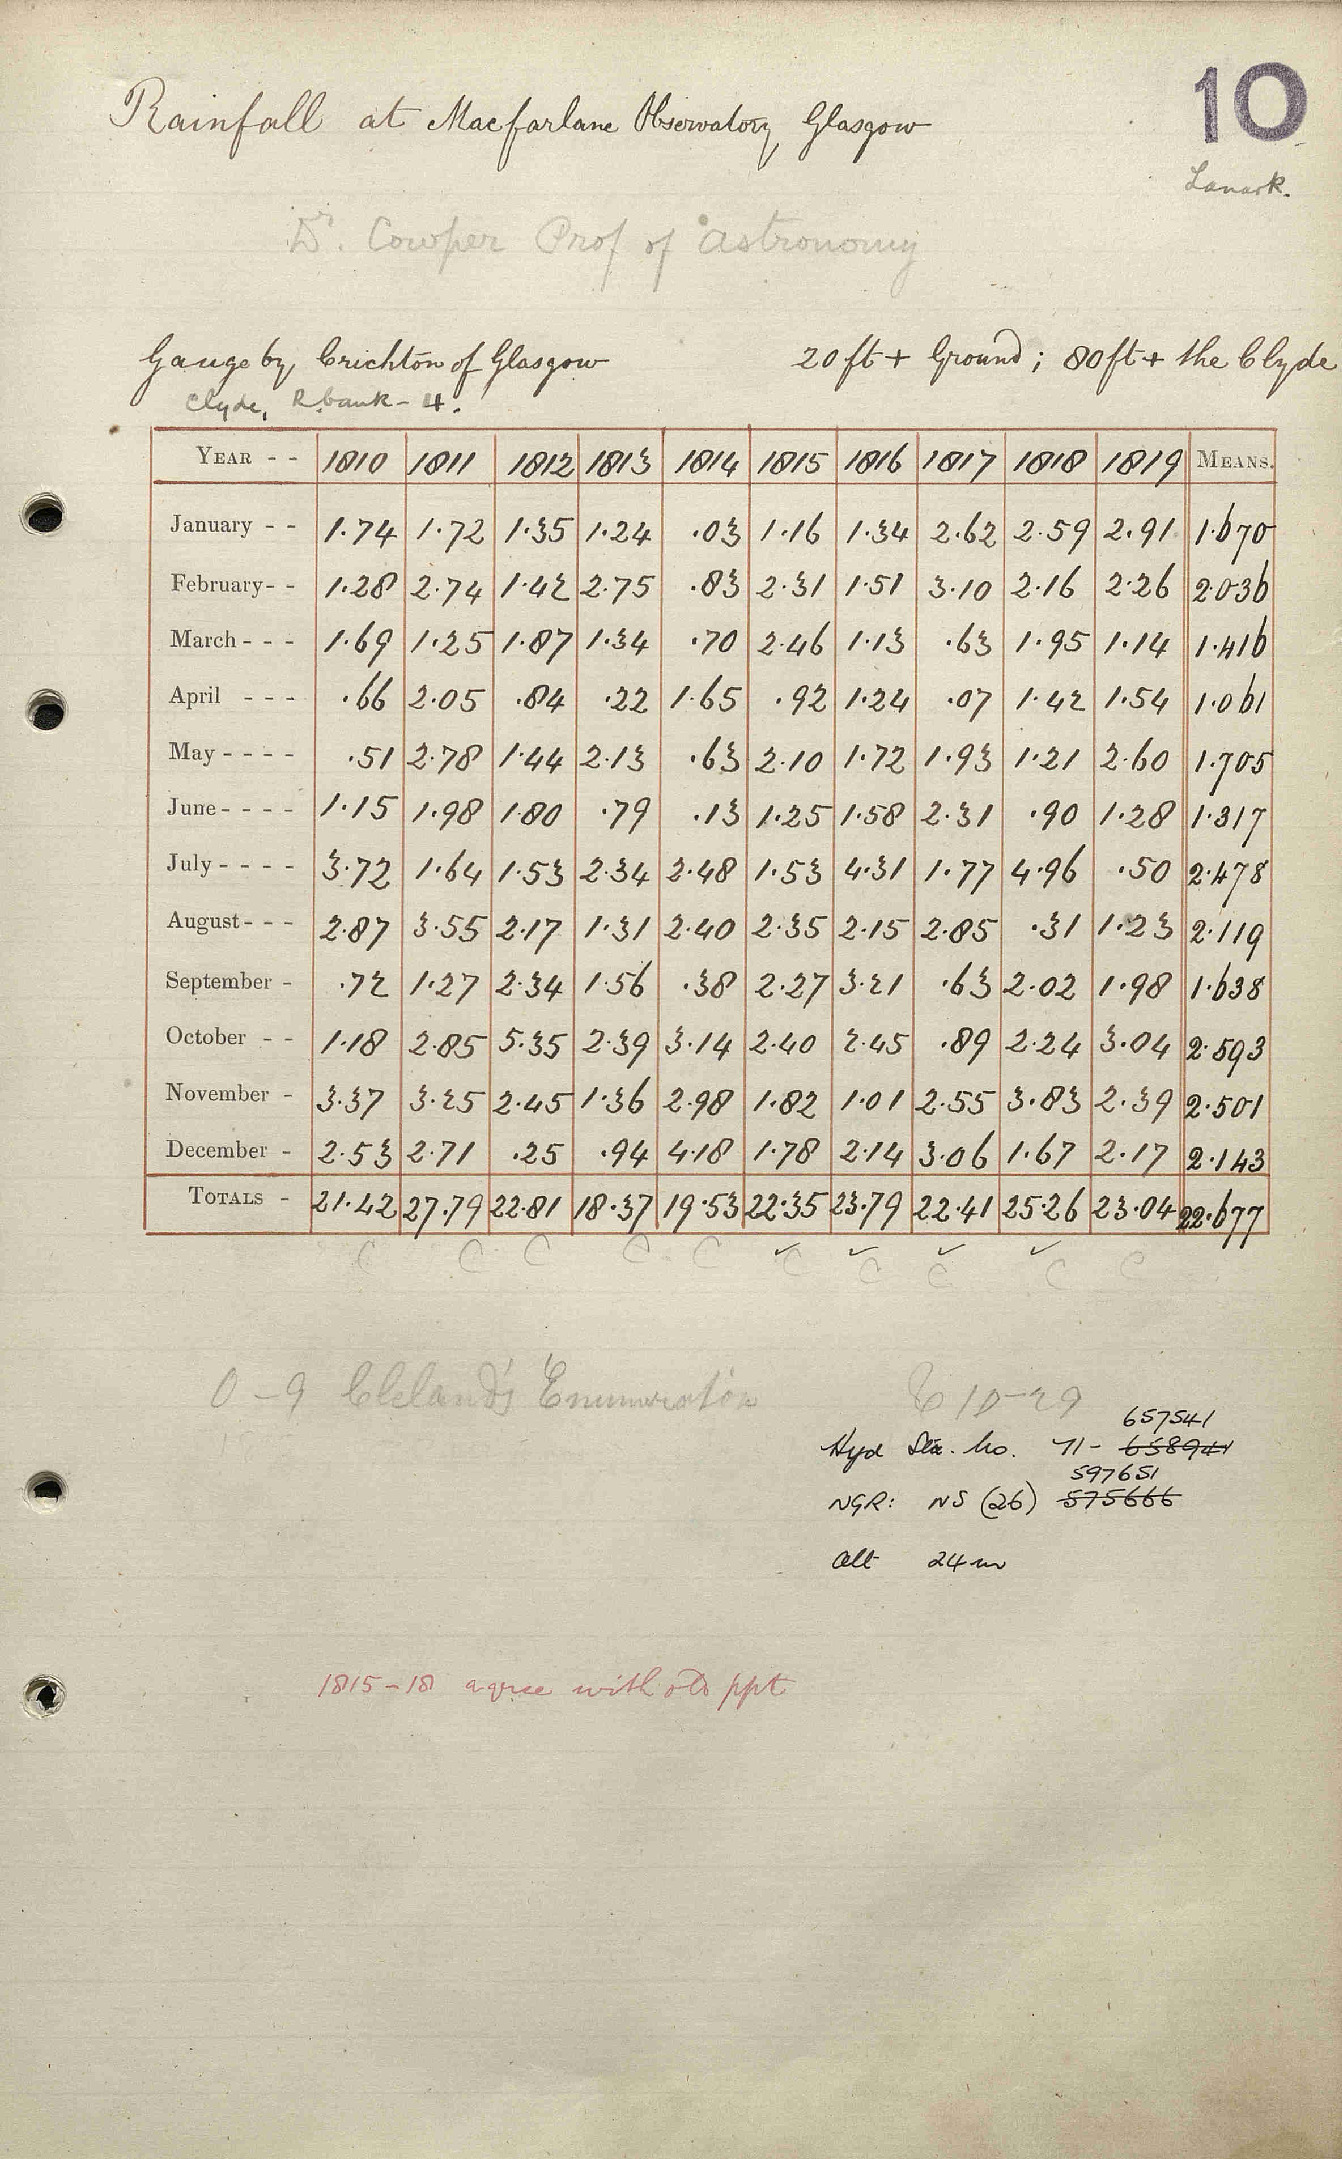 10
Rainfall at Macfarlane Observatory Glasgow
Lanark.
Dr. Cowper Prof of Astronomy
Gauge by Crichton of Glasgow 20 ft + Ground; 80 ft + the Clyde
Clyde, R bank - 4.
YEAR - - 1810 1811 1812 1813 1814 1815 1816 1817 1818 1819 MEANS.
January - - 1.74 1.72 1.35 1.24 .03 1.16 1.34 2.62 2.59 2.91 1.670
February - - 1.28 2.74 1.42 2.75 .83 2.31 1.51 3.10 2.16 2.26 2.036
March - - - 1.69 1.25 1.87 1.34 .70 2.46 1.13 .63 1.95 1.14 1.416
April - - - .66 2.05 .84 .22 1.65 .92 1.24 .07 1.42 1.54 1.061
May - - - - .51 2.78 1.44 2.13 .63 2.10 1.72 1.93 1.21 2.60 1.705
June - - - - 1.15 1.98 1.80 .79 .13 1.25 1.58 2.31 .90 1.28 1.317
July - - - - 3.72 1.64 1.53 2.34 2.48 1.53 4.31 1.77 4.96 .50 2.478
August - - - 2.87 3.55 2.17 1.31 2.40 2.35 2.15 2.85 .31 1.23 2.119
September - .72 1.27 2.34 1.56 .38 2.27 3.21 .63 2.02 1.98 1.638
October - - 1.18 2.85 5.35 2.39 3.14 2.40 2.45 .89 2.24 3.04 2.593
November - 3.37 3.25 2.45 1.36 2.98 1.82 1.01 2.55 3.83 2.39 2.501
December - 2.53 2.71 .25 .94 4.18 1.78 2.14 3.06 1.67 2.17 2.143
TOTALS - 21.42 27.79 22.81 18.37 19.53 22.35 23.79 22.41 25.26 23.04 22.677
C C C C C C C C C C
0-9 Cleland's Enumeration 10-29
657541
Hyd Sta. No. 71- 658941
597651
NGR: NS (26) 575666
Alt 24m
1815-18 agree with old ppt